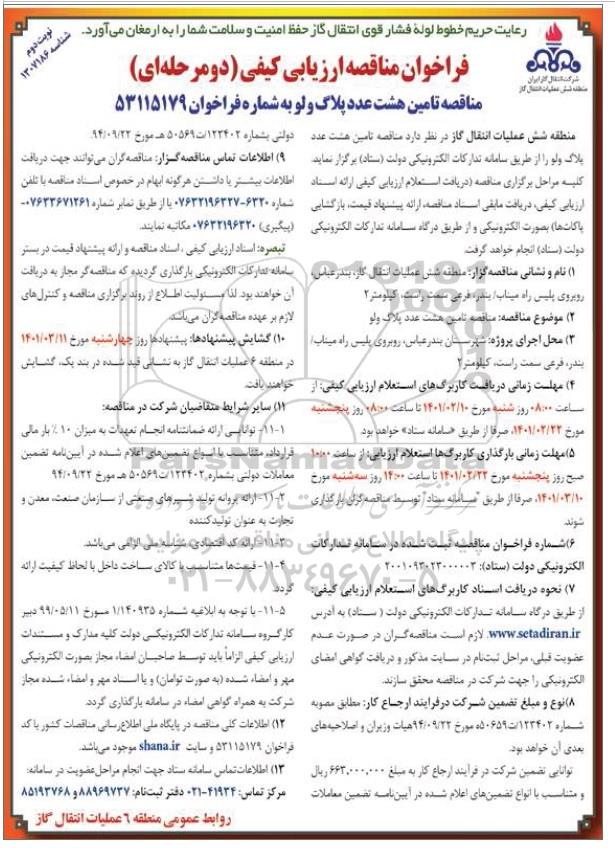 رعایت حریم خطوط لولهٔ فشار قوی انتقال گاز حفظ امنیت و سلامت شما را به ارمغان می‌آورد.
نوبت دوم
شناسه ۱۳۰۷۱۸۶
شرکت انتقال گاز ایران
منطقه شش عملیات انتقال گاز
فراخوان مناقصه ارزیابی کیفی (دو مرحله‌ای)
مناقصه تامین هشت عدد پلاگ ولو به شماره فراخوان ۵۳۱۱۵۱۷۹
منطقه شش عملیات انتقال گاز در نظر دارد مناقصه تامین هشت عدد
پلاگ ولو را از طریق سامانه تدارکات الکترونیکی دولت (ستاد) برگزار نماید.
کلیسه مراحل برگزاری مناقصه (دریافت استعلام ارزیابی کیفی ارائه اسناد
ارزیابی کیفی، دریافت مابقی اسناد مناقصه، ارائه پیشنهاد قیمت، بازگشایی
پاکات‌ها) بصورت الکترونیکی و از طریق درگاه سامانه تدارکات الکترونیکی
دولت (ستاد) انجام خواهد گرفت.
۱) نام و نشانی مناقصه‌گزار: منطقه شش عملیات انتقال گاز، بندرعباس،
روبروی پلیس راه میناب/ بندر، فرعی سمت راست، کیلومتر۲
۲) موضوع مناقصه: مناقصه تامین هشت عدد پلاگ ولو
۳) محل اجرای پروژه: شهرستان بندرعباس، روبروی پلیس راه میناب/
بندر، فرعی سمت راست، کیلومتر۲
۴) مهلت زمانی دریافت کاربرگ‌های استعلام ارزیابی کیفی: از
ساعت ۰۸:۰۰ روز شنبه مورخ ۱۴۰۱/۰۲/۱۰ تا ساعت ۰۸:۰۰ روز پنجشنبه
مورخ ۱۴۰۱/۰۲/۲۲، صرفا از طریق «سامانه ستاد» خواهد بود.
۵)مهلت زمانی بارگذاری کاربرگ‌ها استعلام ارزیابی: از ساعت ۱۰:۰۰
صبح روز پنجشنبه مورخ ۱۴۰۱/۰۲/۲۲ تا ساعت ۱۴:۰۰ روز سه‌شنبه مورخ
۱۴۰۱/۰۳/۱۰، صرفا از طریق "سامانه ستاد" توسط مناقصه‌گران بارگذاری
شوند.
۶)شماره فراخوان مناقصه ثبت شده در سامانه تدارکات
الکترونیکی دولت (ستاد): ۲۰۰۱۰۹۳۰۲۳۰۰۰۰۰۳
۷) نحوه دریافت اسناد کاربرگ‌های استعلام ارزیابی کیفی:
از طریق درگاه سامانه تدارکات الکترونیکی دولت ( ستاد) به آدرس
www.setadiran.ir. لازم است مناقصه‌گران در صورت عدم
عضویت قبلی، مراحل ثبت‌نام در سایت مذکور و دریافت گواهی امضای
الکترونیکی را جهت شرکت در مناقصه محقق سازند.
۸)نوع و مبلغ تضمین شرکت درفرایند ارجاع کار: مطابق مصوبه
شماره ۱۲۳۴۰۲/ت۵۰۶۵۹ه مورخ ۹۴/۰۹/۲۲هیات وزیران و اصلاحیه‌های
بعدی آن خواهد بود.
توانایی تضمین شرکت در فرآیند ارجاع کار به مبلغ ۶۶۳,۰۰۰,۰۰۰ ریال
و متناسب با انواع تضمین‌های اعلام شده در آیین‌نامه تضمین معاملات
دولتی بشماره ۱۲۳۴۰۲/ت۵۰۵۶۹ هـ مورخ ۹۴/۰۹/۲۲.
۹) اطلاعات تماس مناقصه‌گزار: مناقصه‌گران می‌توانند جهت دریافت
اطلاعات بیشتر یا داشتن هرگونه ابهام در خصوص اسناد مناقصه با تلفن
شماره ۶۳۲۰-۰۷۶۳۲۱۹۶۳۲۷ یا از طریق نمابر شماره ۰۷۶۳۳۶۷۱۲۶۱-
(پیگیری) ۰۷۶۳۲۱۹۶۳۲۰ مکاتبه نمایند.
تبصره: اسناد ارزیابی کیفی ، اسناد مناقصه و ارائه پیشنهاد قیمت در بستر
سامانه تدارکات الکترونیکی بارگذاری گردیده که مناقصه‌گر مجاز به دریافت
آن خواهند بود. لذا مسئولیت اطلاع از روند برگزاری مناقصه و کنترل‌های
لازم بر عهده مناقصه‌گران می‌باشد.
۱۰) گشایش پیشنهادها: پیشنهادها روز چهارشنبه مورخ ۱۴۰۱/۰۳/۱۱
در منطقه ۶ عملیات انتقال گاز به نشانی قید شده در بند یک، گشایش
خواهند یافت.
۱۱) سایر شرایط متقاضیان شرکت در مناقصه:
۱-۱۱- توانایی ارائه ضمانتنامه انجام تعهدات به میزان ۱۰ ٪ بار مالی
قرارداد، متناسب با انواع تضمین‌های اعلام شده در آیین‌نامه تضمین
معاملات دولتی بشماره ۱۲۳۴۰۲/ت۵۰۵۶۹ هـ مورخ ۹۴/۰۹/۲۲
۲-۱۱- ارائه پروانه تولید شیرهای صنعتی از سازمان صنعت، معدن و
تجارت به عنوان تولیدکننده
۳-۱۱- ارائه کد اقتصادی، شناسه ملی الزامی می‌باشد.
۴-۱۱- قیمت‌ها متناسب با کالای ساخت داخل با لحاظ کیفیت ارائه
گردد.
۵-۱۱- با توجه به ابلاغیه شماره ۱/۱۴۰۹۳۵ مورخ ۹۹/۰۵/۱۱ دبیر
کارگروه سامانه تدارکات الکترونیکی دولت کلیه مدارک و مستندات
ارزیابی کیفی الزاماً باید توسط صاحبان امضاء مجاز بصورت الکترونیکی
مهر و امضاء شده (به صورت توامان) و یا اسناد مهر و امضاء شده مجاز
شرکت به همراه گواهی امضاء در سامانه بارگذاری گردد.
۱۲) اطلاعات کلی مناقصه در پایگاه ملی اطلاع‌رسانی مناقصات کشور با کد
فراخوان ۵۳۱۱۵۱۷۹ و سایت shana.ir موجود می‌باشد.
۱۳) اطلاعات‌تماس سامانه ستاد جهت انجام مراحل‌عضویت در سامانه:
مرکز تماس: ۴۱۹۳۴-۰۲۱ دفتر ثبت‌نام: ۸۸۹۶۹۷۳۷ و ۸۵۱۹۳۷۶۸
روابط عمومی منطقه ۶ عملیات انتقال گاز
ParsNamadData
پایگاه اطلاع رسانی مناقصه و مزایده
۰۲۱-۸۸۳۴۹۶۷۰-۵